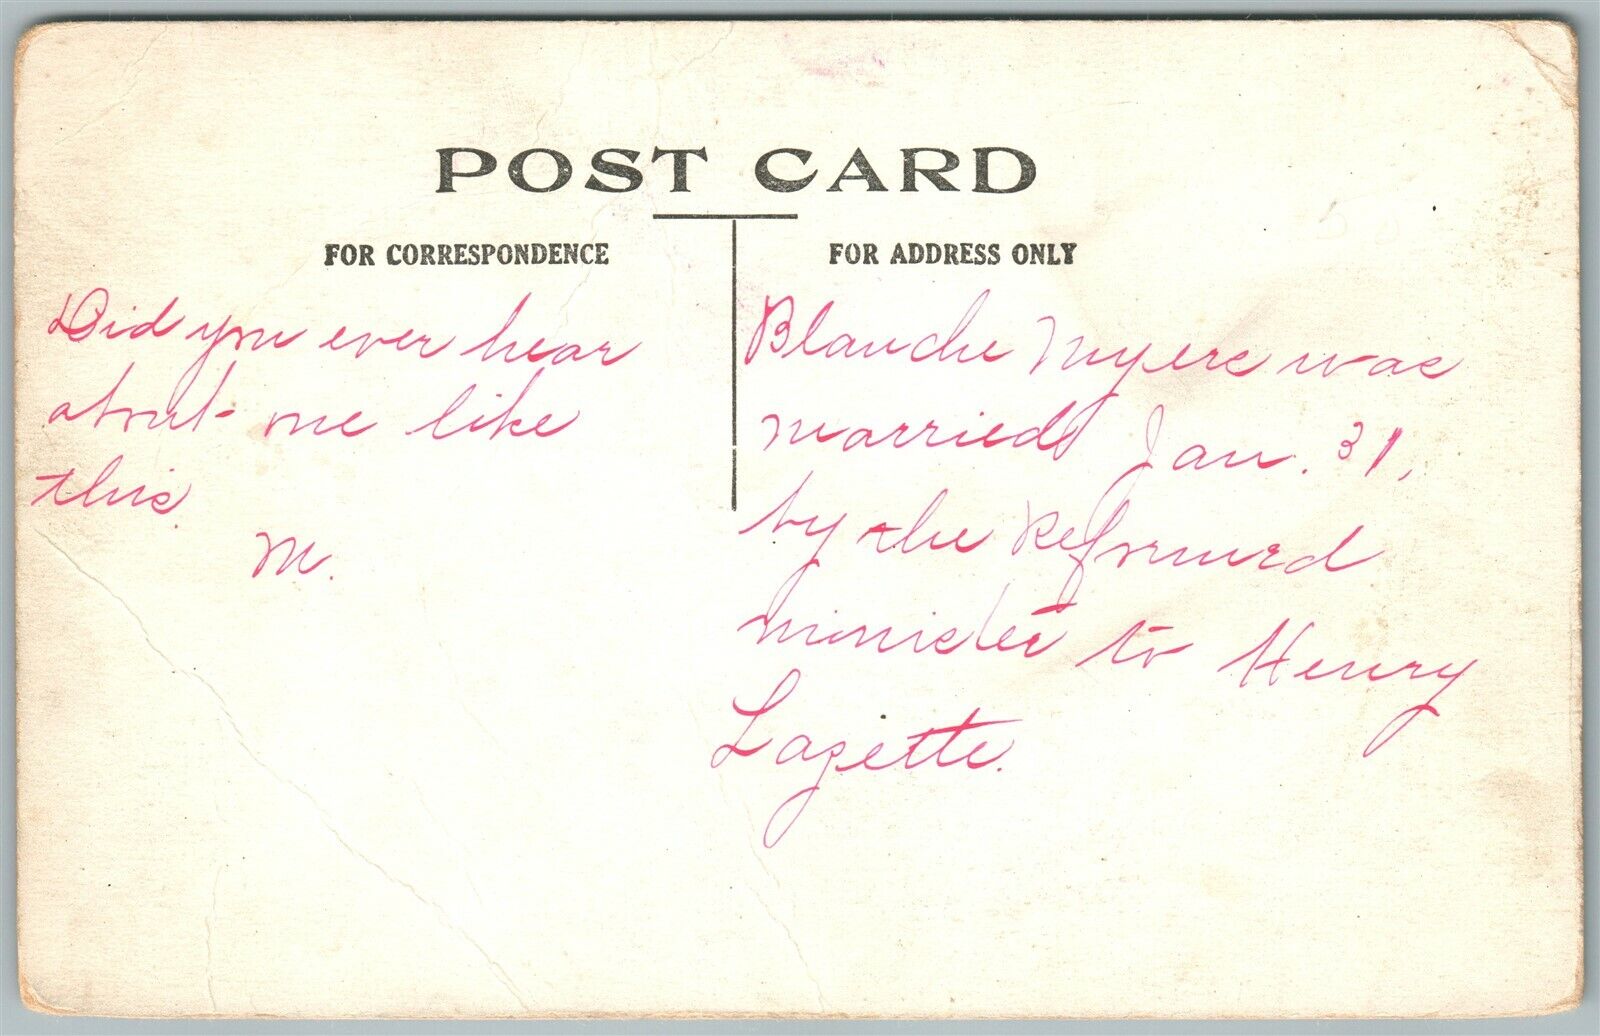 POST CARD
FOR CORRESPONDENCE
Did you ever hear
about me like
this.
M.
FOR ADDRESS ONLY
Blanche Myers was
married Jan. 31,
by the Reformed
minister to Henry
Lazette.